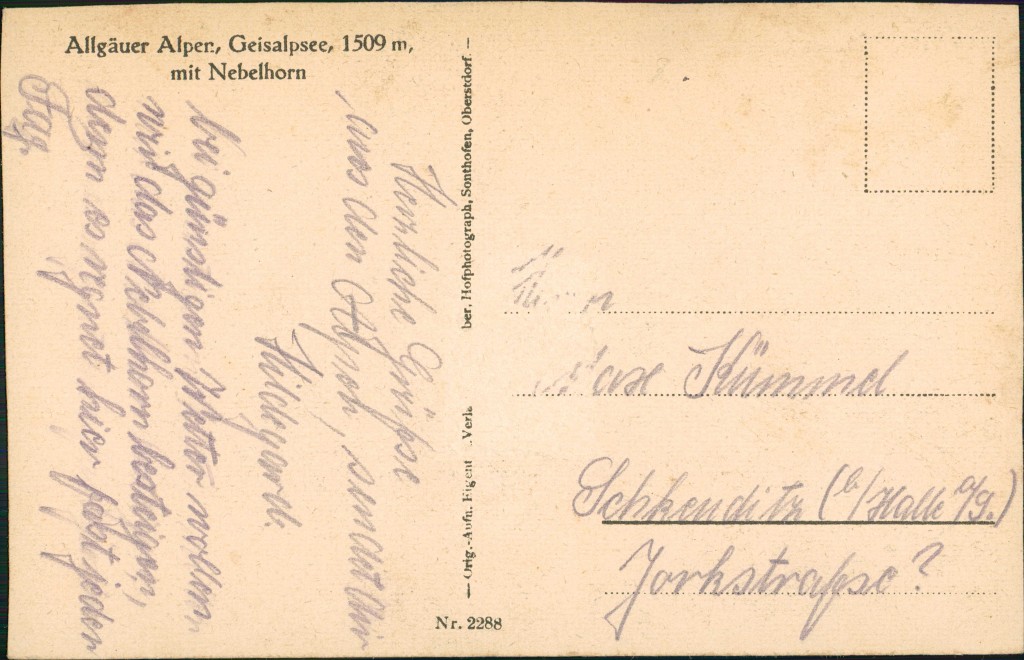 Allgäuer Alpen, Geisalpsee, 1509 m,
mit Nebelhorn
Herzliche Grüße
aus den Alpen, sendet Dir
Hildegard.
bei günstigen Wetter wollen
wir das Nebelhorn besteigen,
denn es regnet hier fast jeden
Tag.
Orig.-Aufn. Eigent Verla ber, Hofphotograph, Sonthofen, Oberstdorf. –
Nr. 2288
Herrn
Max Kümmel
Schkeuditz (b/Halle a/S.)
Yorkstraße?